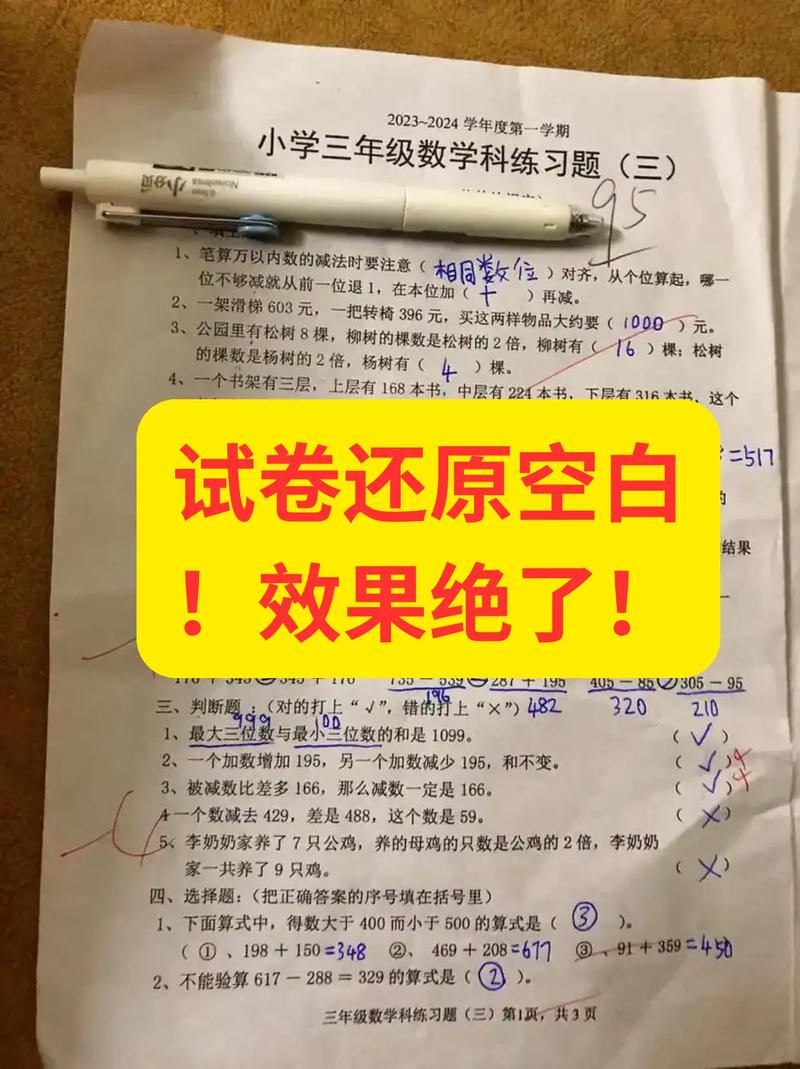 2023~2024 学年度第一学期
小学三年级数学科练习题（三）
95
小分贝
1、笔算万以内数的减法时要注意（ 相同数位 ）对齐，从个位算起，哪一
位不够减就从前一位退 1，在本位加（ 十 ）再减。
2、一架滑梯 603 元，一把转椅 396 元，买这两样物品大约要（ 1000 ）元。
3、公园里有松树 8 棵，柳树的棵数是松树的 2 倍，柳树有（ 16 ）棵；松树
的棵数是杨树的 2 倍，杨树有（ 4 ）棵。
4、一个书架有三层，上层有 168 本书，中层有 224 本书，下层有 316 本书，这个
=517
的
结果
试卷还原空白
！效果绝了！
735 − 539 287 + 195 405 − 85 305 − 95
196 482 320 210
三、判断题：（对的打上“√”，错的打上“×”）
999 100
1、最大三位数与最小三位数的和是 1099。 （ √ ）
2、一个加数增加 195，另一个加数减少 195，和不变。 （ √ ）
3、被减数比差多 166，那么减数一定是 166。 （ √ ）
4 一个数减去 429，差是 488，这个数是 59。 （ × ）
5、李奶奶家养了 7 只公鸡，养的母鸡的只数是公鸡的 2 倍，李奶奶
家一共养了 9 只鸡。 （ × ）
四、选择题：（把正确答案的序号填在括号里）
1、下面算式中，得数大于 400 而小于 500 的算式是（ ③ ）。
（ ①、198 + 150 =348 ②、 469 + 208 =677 ③、91 + 359 =450
2、不能验算 617 − 288 = 329 的算式是（ ② ）。
三年级数学科练习题（三）第1页，共 3 页